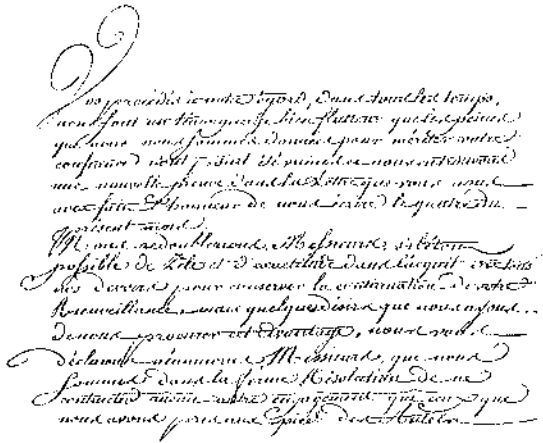 Vos procédés à notre Egard, dans tous les temps,
nous sont un témoignage bien flatteur que les peines
que nous nous sommes données pour mériter votre
confiance n'ont point été vaines et nous
une nouvelle preuve dans la Lettre que vous nous
avez fait l'honneur de nous écrire le quatre du
présent mois.
Nous redoublerons, Messieurs, s'il est
possible de Zèle et d'exactitude dans l'acquit de tous
nos devoirs pour conserver la continuation de votre
Bienveillance, mais quelque désir que nous ayons
de nous procurer cet avantage, nous vous
déclarons néanmoins Messieurs, que nous
sommes dans la ferme Résolution de ne
contracter aucun autre engagement que ceux que
nous avons pris aux des